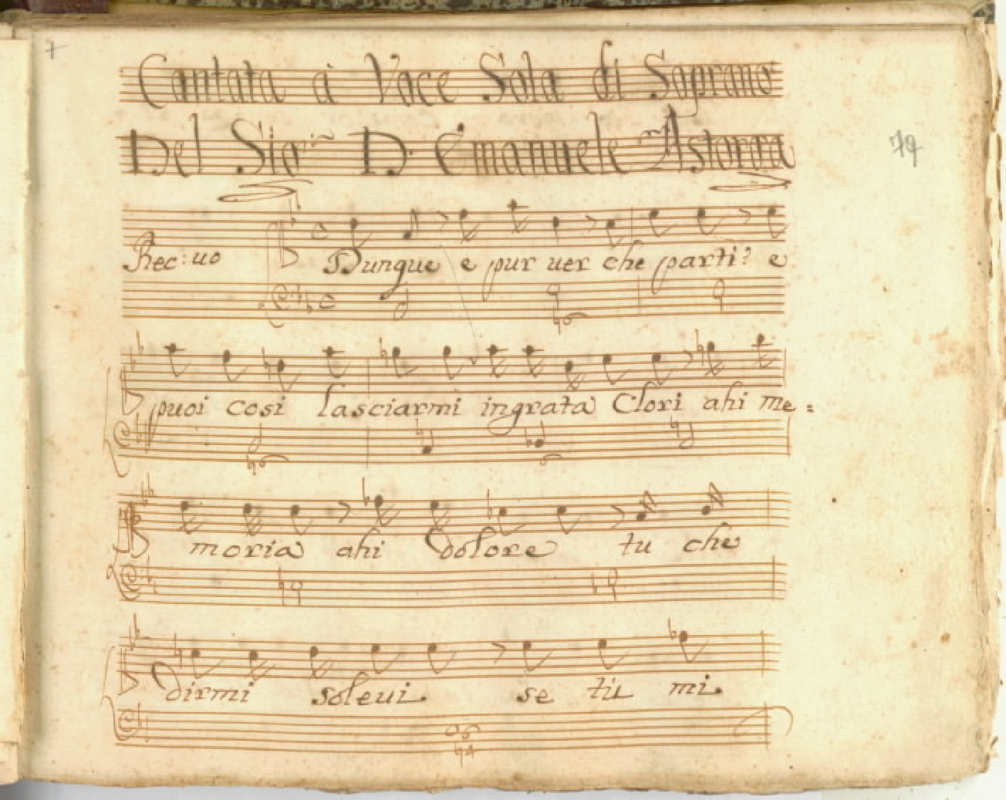 7
Cantata à Voce Sola di Soprano
Del Sig.r D. Emanuele Astorga
79
Rec:uo Dunque e pur uer che parti? e
puoi cosi lasciarmi ingrata Clori ahi me=
moria ahi dolore tu che
dirmi soleui se tù mi